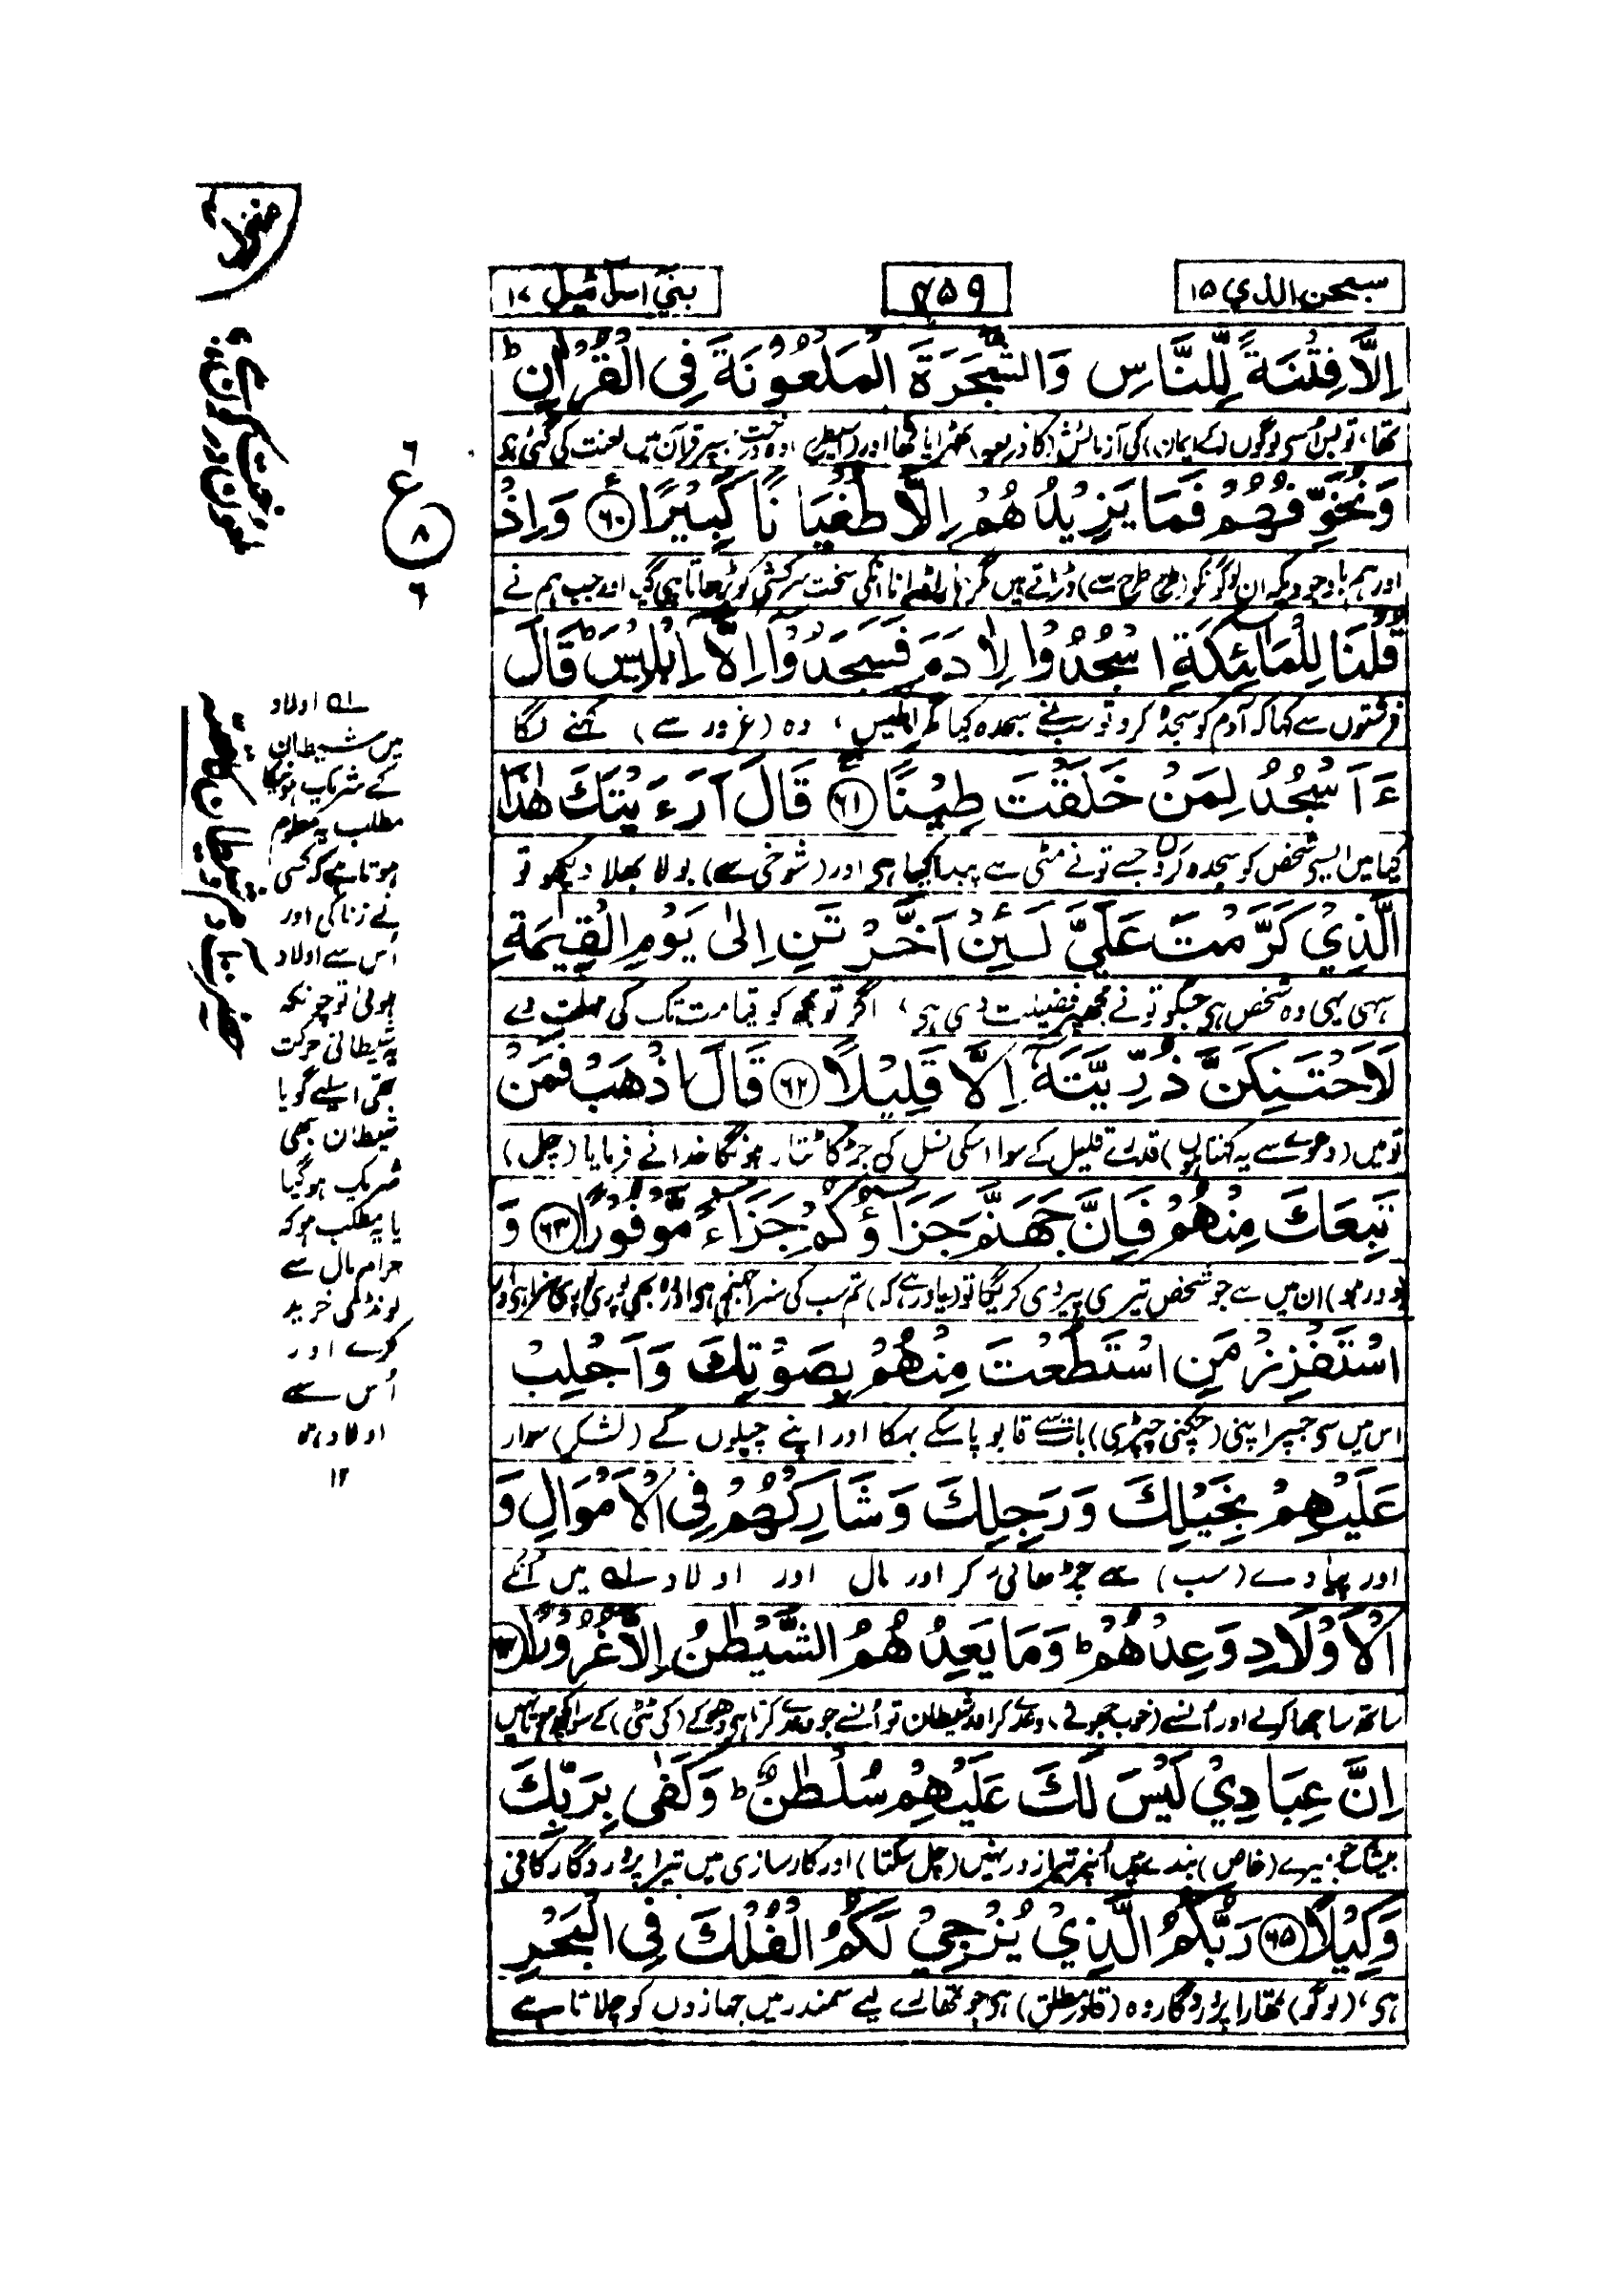 سبحٰن الذي ۱۵
۴۵۹
بني اسرآءيل ۱۷
اِلَّا فِتْنَةً لِّلنَّاسِ وَالشَّجَرَةَ الْمَلْعُوْنَةَ فِى الْقُرْاٰنِ ؕ
تھا، تو بس اُسی لوگوں (کے ایمان) کی آزمائش (کا ذریعہ) ٹھہرایا تھا اور (اسیطرح) وہ درخت جسپر قرآن میں لعنت کی گئی ہی
وَنُخَوِّفُهُمْ فَمَا يَزِيْدُهُمْ اِلَّا طُغْيَانًا كَبِيْرًا ﴿۶۰﴾ وَاِذْ
اور ہم باوجودیکہ ان لوگونکو (طرح طرح سے) ڈراتے ہیں مگر ہمارا ڈرانا انکی سخت سرکشی کو بڑھاتا ہی گیا اور جب ہم نے
قُلْنَا لِلْمَلٰٓئِكَةِ اسْجُدُوْا لِاٰدَمَ فَسَجَدُوْٓا اِلَّآ اِبْلِيْسَ ؕ قَالَ
فرشتوں سے کہا کہ آدم کو سجدہ کرو تو سب نے سجدہ کیا مگر ابلیس، وہ (غرور سے) کہنے لگا
ءَاَسْجُدُ لِمَنْ خَلَقْتَ طِيْنًا ﴿۶۱﴾ قَالَ اَرَءَيْتَكَ هٰذَا
کیا میں ایسے شخص کو سجدہ کروں جسے تو نے مٹی سے پیدا کیا ہی اور (شوخی سے) بولا بھلا دیکھو تو
الَّذِيْ كَرَّمْتَ عَلَيَّ لَئِنْ اَخَّرْتَنِ اِلٰى يَوْمِ الْقِيٰمَةِ
سہی یہی وہ شخص ہی جسکو تو نے مجھپر فضیلت دی ہی، اگر تو مجھکو قیامت تک کی مہلت دے
لَاَحْتَنِكَنَّ ذُرِّيَّتَهٗٓ اِلَّا قَلِيْلًا ﴿۶۲﴾ قَالَ اذْهَبْ فَمَنْ
تو میں (دعوے سے یہ کہتا ہوں) قدرے قلیل کے سوا اسکی نسل کی جڑ کاٹتا رہونگا خدا نے فرمایا (چل)
تَبِعَكَ مِنْهُمْ فَاِنَّ جَهَنَّمَ جَزَآؤُكُمْ جَزَآءً مَّوْفُوْرًا ﴿۶۳﴾ وَ
(دور ہو) ان میں سے جو شخص تیری پیروی کریگا تو (یاد رہے کہ) تم سب کی سزا جہنم ہی اور وہ بھی پوری پوری سزا ہی اور
اسْتَفْزِزْ مَنِ اسْتَطَعْتَ مِنْهُمْ بِصَوْتِكَ وَاَجْلِبْ
اس میں سی جسپر اپنی (چکنی چپڑی) بات سے قابو پا سکے بہکا اور اپنے چیلوں کے (لشکر) سوار
عَلَيْهِمْ بِخَيْلِكَ وَرَجِلِكَ وَشَارِكْهُمْ فِى الْاَمْوَالِ وَ
اور پیادے (سب) سے چڑھائی کر اور مال اور اولاد لہ میں اُنکے
الْاَوْلَادِ وَعِدْهُمْ ؕ وَمَا يَعِدُهُمُ الشَّيْطٰنُ اِلَّا غُرُوْرًا ﴿۶۴﴾
ساتھ ساجھا کرلے اور اُنسے (خوب جھوٹے) وعدے کر اور شیطان تو اُنسے جو وعدے کرتا ہی دھوکے (کی ٹٹی) کے سوا کچھ ہوتا نہیں
اِنَّ عِبَادِيْ لَيْسَ لَكَ عَلَيْهِمْ سُلْطٰنٌ ؕ وَكَفٰى بِرَبِّكَ
بیشک جو میرے (خاص) بندے ہیں اُنپر تیرا زور نہیں (چل سکتا) اور کارسازی میں تیرا پروردگار کافی
وَكِيْلًا ﴿۶۵﴾ رَبُّكُمُ الَّذِيْ يُزْجِيْ لَكُمُ الْفُلْكَ فِى الْبَحْرِ
ہی، (لوگو) تمھارا پروردگار وہ (قادر مطلق) ہی جو تمھارے لیے سمندر میں جہازوں کو چلاتا ہے
ع
۸
۶
لہ اولاد
میں شیطان
کے شریک ہونیکا
مطلب یہ معلوم
ہوتا ہے کہ کسی
نے زنا کی اور
اُس سے اولاد
ہوئی تو چونکہ
یہ شیطانی حرکت
تھی اسلیے گویا
شیطان بھی
شریک ہوگیا
یا یہ مطلب ہو کہ
حرام مال سے
لونڈی خرید
کرے اور
اُس سے
اولاد ہو
۱۲